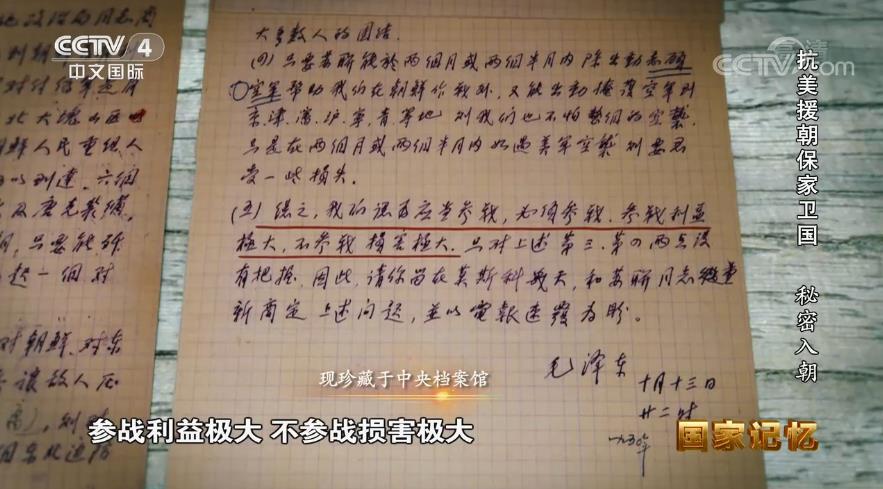 CCTV 4
中文国际
CCTV.com
抗美援朝保家卫国 秘密入朝
大多数人的团结.
(四)只要苏联能於两個月或两個半月内除出動志願
空軍帮助我们在朝鮮作战外,又能出動掩護空軍到
京、津、瀋、沪、寧、青等地 则我们也不怕整個的空襲,
只是在两個月或两個半月内如遇美軍空襲则要忍
受一些損失。
(五)總之,我们認为应当参战,必須参战.参战利益
極大,不参战損害極大.只对上述第三、第四两点没
有把握.因此,請你留在莫斯科數天,和苏聯同志
新商定上述问題,並以電報速覆为盼。
毛泽东
十月十三日
廿二时
一九五〇年
鮮人民
可以到達.六個
对朝鮮.对东
讓敌人
现珍藏于中央档案馆
参战利益极大 不参战损害极大
国家记忆